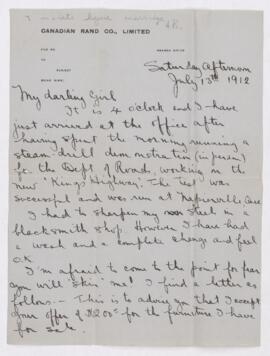 CANADIAN RAND CO., LIMITED
Saturday Afternoon
July 13th 1912
My darling Girl
It is 4 o'clock and I have
just arrived at the office after
having spent the morning running a
steam-drill demonstration (in person)
for the Dept of Roads, working on the
new "King's Highway". The test was
successful and was run at Napierville Que
I had to sharpen my own steel in a
blacksmith shop. However I have had
a wash and a complete change and feel
O.K.
I'm afraid to come to the point for fear
you will "skin" me! I find a letter as
follows:- "This is to advise you that I accept
your offer of $200 for the furniture I have
for sale.